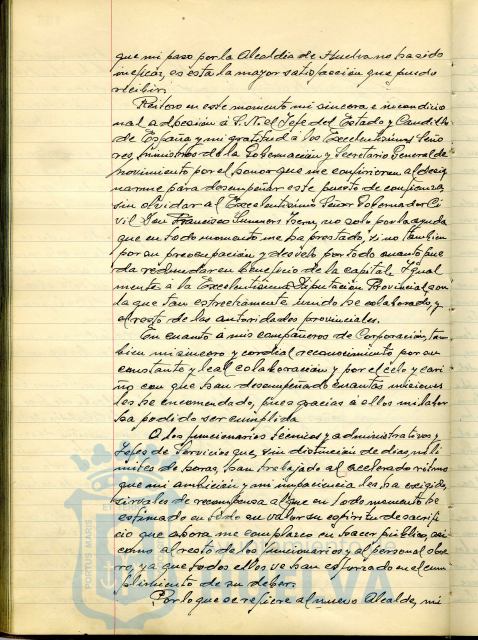 que mi paso por la Alcaldía de Huelva no ha sido
ineficaz, es esta la mayor satisfacción que puedo
recibir.
Reitero en este momento mi sincera e incondicio
nal adhesión a S.E. el Jefe del Estado y Caudillo
de España y mi gratitud á los Excelentísimos Seño
res, Ministros de la Gobernación y Secretario General de
Movimiento por el honor que me confirieron al desig
narme para desempeñar este puesto de confianza,
sin olvidar al Excelentísimo Señor Gobernador Ci
vil Don Francisco Summers Isern, no solo por la ayuda
que en todo momento me ha prestado, sino tambien
por su preocupación y desvelo por todo cuanto pue
da redundar en beneficio de la capital. Igual
mente á la Excelentísima Diputación Provincial con
la que tan estrechamente unido he colaborado, y
al resto de las autoridades provinciales.
En cuanto á mis compañeros de Corporación, tam
bien mi sincero y cordial reconocimiento por su
constante y leal colaboración y por el celo y cari
ño con que han desempeñado cuantas misiones
les he encomendado, pues gracias á ellos mi labor
ha podido ser cumplida
A los funcionarios técnicos y administrativos y
Jefes de Servicios que, sin distinción de dias, ni lí
mites de horas, han trabajado al acelerado ritmo
que mi ambición y mi impaciencia les ha exigido,
sírvales de recompensa al que en todo momento he
estimado en todo su valor su espíritu de sacrifi
cio que ahora me complazco en hacer público, así
como al resto de los funcionarios y al personal obre
ro, ya que todos ellos se han esforzado en el cum
plimiento de su deber.
Por lo que se refiere al nuevo Alcalde, mi
PORTUS MARIS
HUELVA